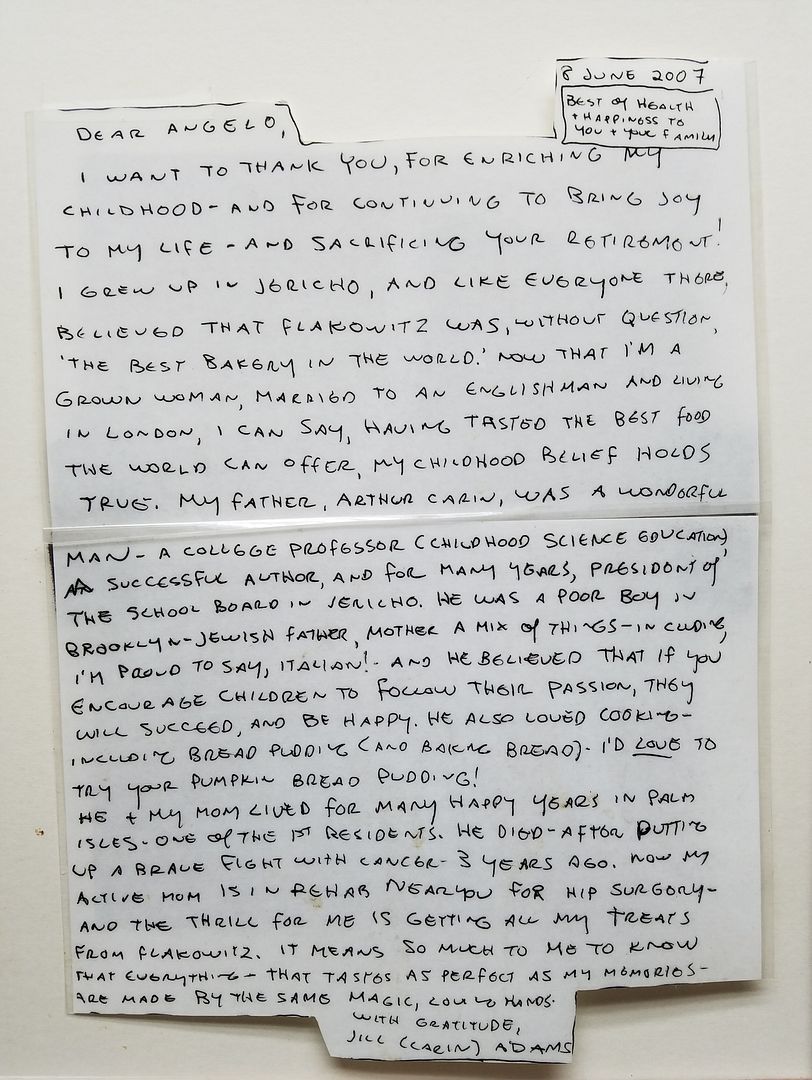 8 JUNE 2007
BEST OF HEALTH
+ HAPPINESS TO
YOU + YOUR FAMILY
DEAR ANGELO,
I WANT TO THANK YOU, FOR ENRICHING MY
CHILDHOOD - AND FOR CONTINUING TO BRING JOY
TO MY LIFE - AND SACRIFICING YOUR RETIREMENT!
I GREW UP IN JERICHO, AND LIKE EVERYONE THERE,
BELIEVED THAT FLAKOWITZ WAS, WITHOUT QUESTION,
'THE BEST BAKERY IN THE WORLD.' NOW THAT I'M A
GROWN WOMAN, MARRIED TO AN ENGLISHMAN AND LIVING
IN LONDON, I CAN SAY, HAVING TASTED THE BEST FOOD
THE WORLD CAN OFFER, MY CHILDHOOD BELIEF HOLDS
TRUE. MY FATHER, ARTHUR CARIN, WAS A WONDERFUL
MAN - A COLLEGE PROFESSOR (CHILDHOOD SCIENCE EDUCATION),
A SUCCESSFUL AUTHOR, AND FOR MANY YEARS, PRESIDENT OF
THE SCHOOL BOARD IN JERICHO. HE WAS A POOR BOY IN
BROOKLYN - JEWISH FATHER, MOTHER A MIX OF THINGS - INCLUDING,
I'M PROUD TO SAY, ITALIAN! - AND HE BELIEVED THAT IF YOU
ENCOURAGE CHILDREN TO FOLLOW THEIR PASSION, THEY
WILL SUCCEED, AND BE HAPPY. HE ALSO LOVED COOKING -
INCLUDING BREAD PUDDING (AND BAKING BREAD) - I'D LOVE TO
TRY YOUR PUMPKIN BREAD PUDDING!
HE + MY MOM LIVED FOR MANY HAPPY YEARS IN PALM
ISLES - ONE OF THE 1ST RESIDENTS. HE DIED - AFTER PUTTING
UP A BRAVE FIGHT WITH CANCER - 3 YEARS AGO. NOW MY
ACTIVE MOM IS IN REHAB NEAR YOU FOR HIP SURGERY -
AND THE THRILL FOR ME IS GETTING ALL MY TREATS
FROM FLAKOWITZ. IT MEANS SO MUCH TO ME TO KNOW
THAT EVERYTHING - THAT TASTES AS PERFECT AS MY MEMORIES -
ARE MADE BY THE SAME MAGIC, LOVING HANDS.
WITH GRATITUDE,
JILL (CARIN) ADAMS